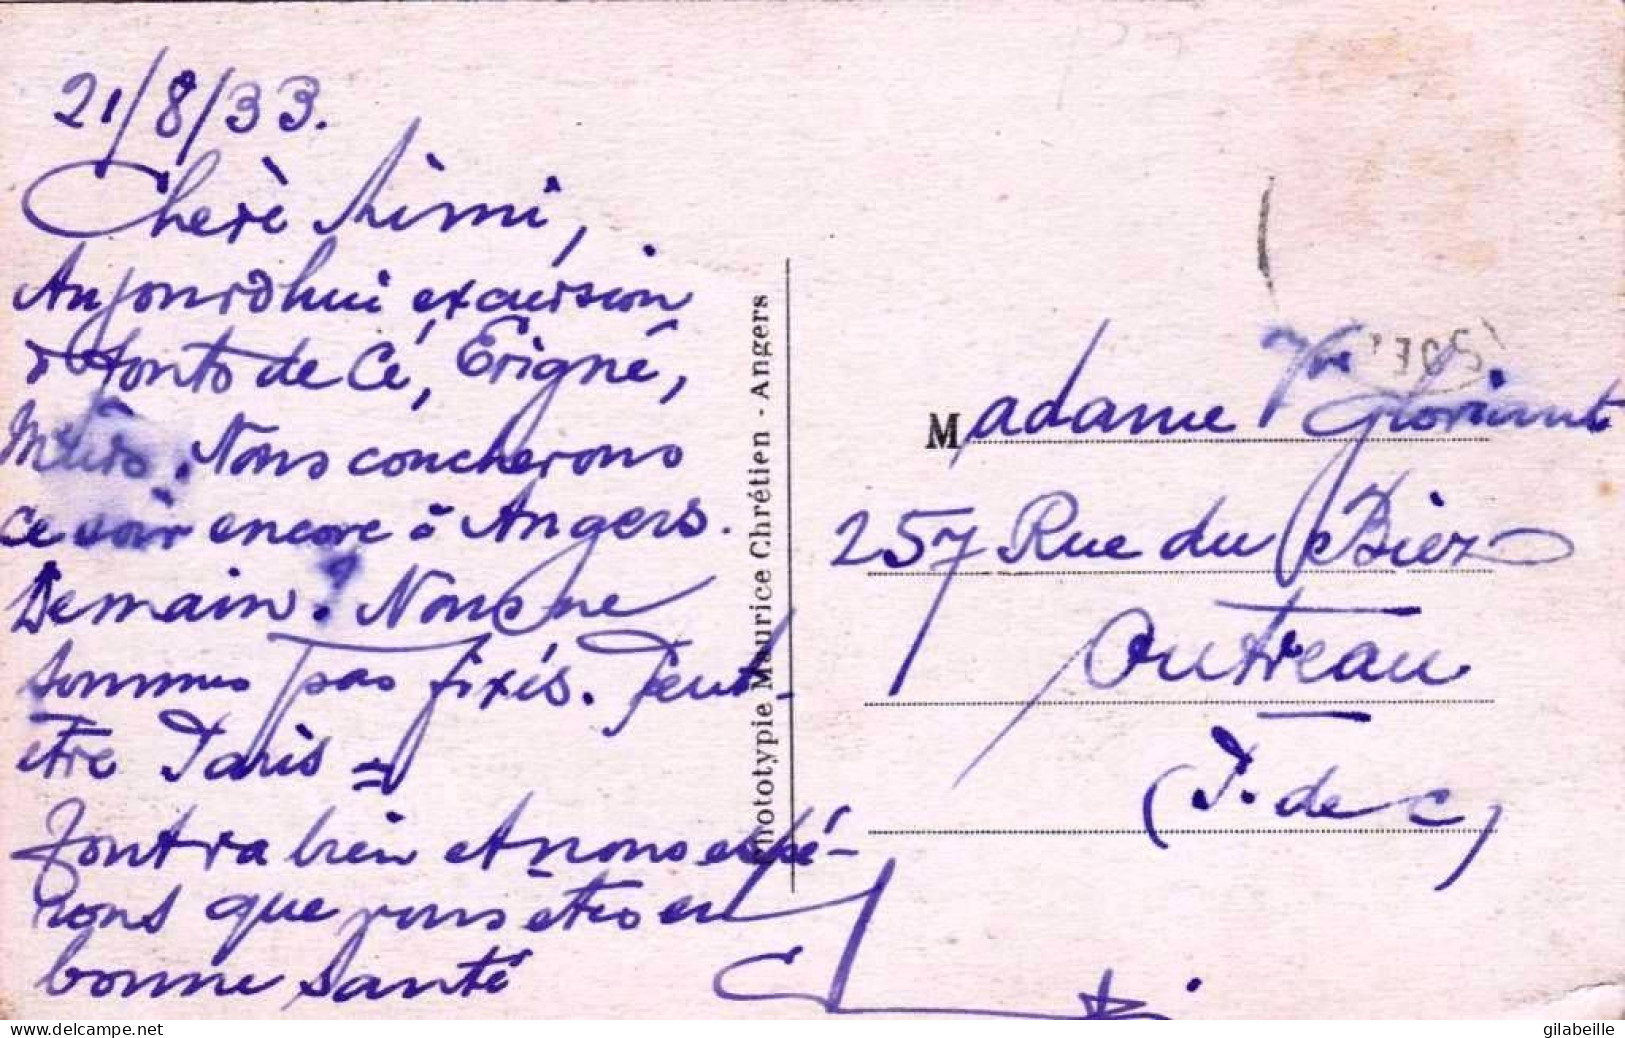 21/8/33.
Cherè Mimi,
Aujourdhui excursion
à Ponts de Cé, Erigné,
Mûrs. Nous coucherons
ce soir encore à Angers.
Demain? Nous ne
sommes pas fixés. Peut-
être Paris =
Tout va bien et nous espé-
rons que vous êtes en
bonne santé
Phototypie Maurice Chrétien - Angers
Madame Vve Gloriant
257 Rue du Biez
Outreau
(P. de C)
gilabeille